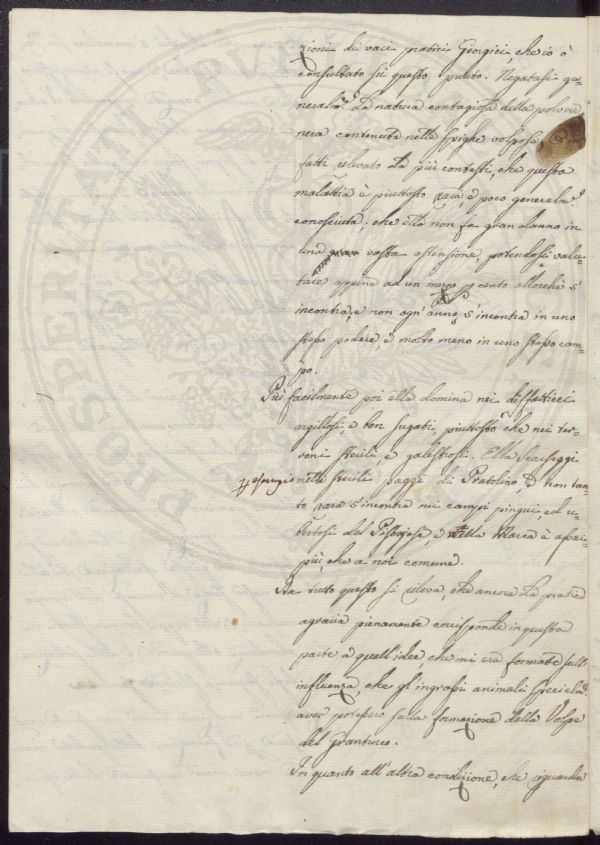 zioni di varj pratici Giorgici, che io ò
consultato sù questo punto. Negatasi ge-
neralm.e la natura contagiosa della polvere
nera contenuta nelle spighe volpose,
fatti rilevato da più contesti, che questa
malattia è piuttosto rara, e poco generalm.e
conosciuta: che ella non fa gran danno in
una vasta estensione, potendosi valu-
tare appena ad un mezzo p cento allorchè s'
incontra, e non ogn'anno s'incontra in uno
stesso podere, e molto meno in uno stesso cam-
po.
Più facilmente poi ella domina nei
argillosi, e ben sugati, piuttosto che nei ter-
reni sterili, e galestrosi. Ella Scarseggi
p esempio nelle sterili piagge di Pratolino, e non tan-
to rara s'incontra nei campi pingui, ed u-
bertosi del Pistojese, e nella Marca è assai
più, che a noi comune.
Da tutto questo si rileva, che ancora la pratica
agraria pienamente corrisponde in questa
parte a quell'idee, che mi era formate sull'
influenza, che gl'ingrassi animali specialm.e
aver potessero sulla formazione della Volpe
del Granturco.
In quanto all'altra condizione, che riguarda
PROSPERITA